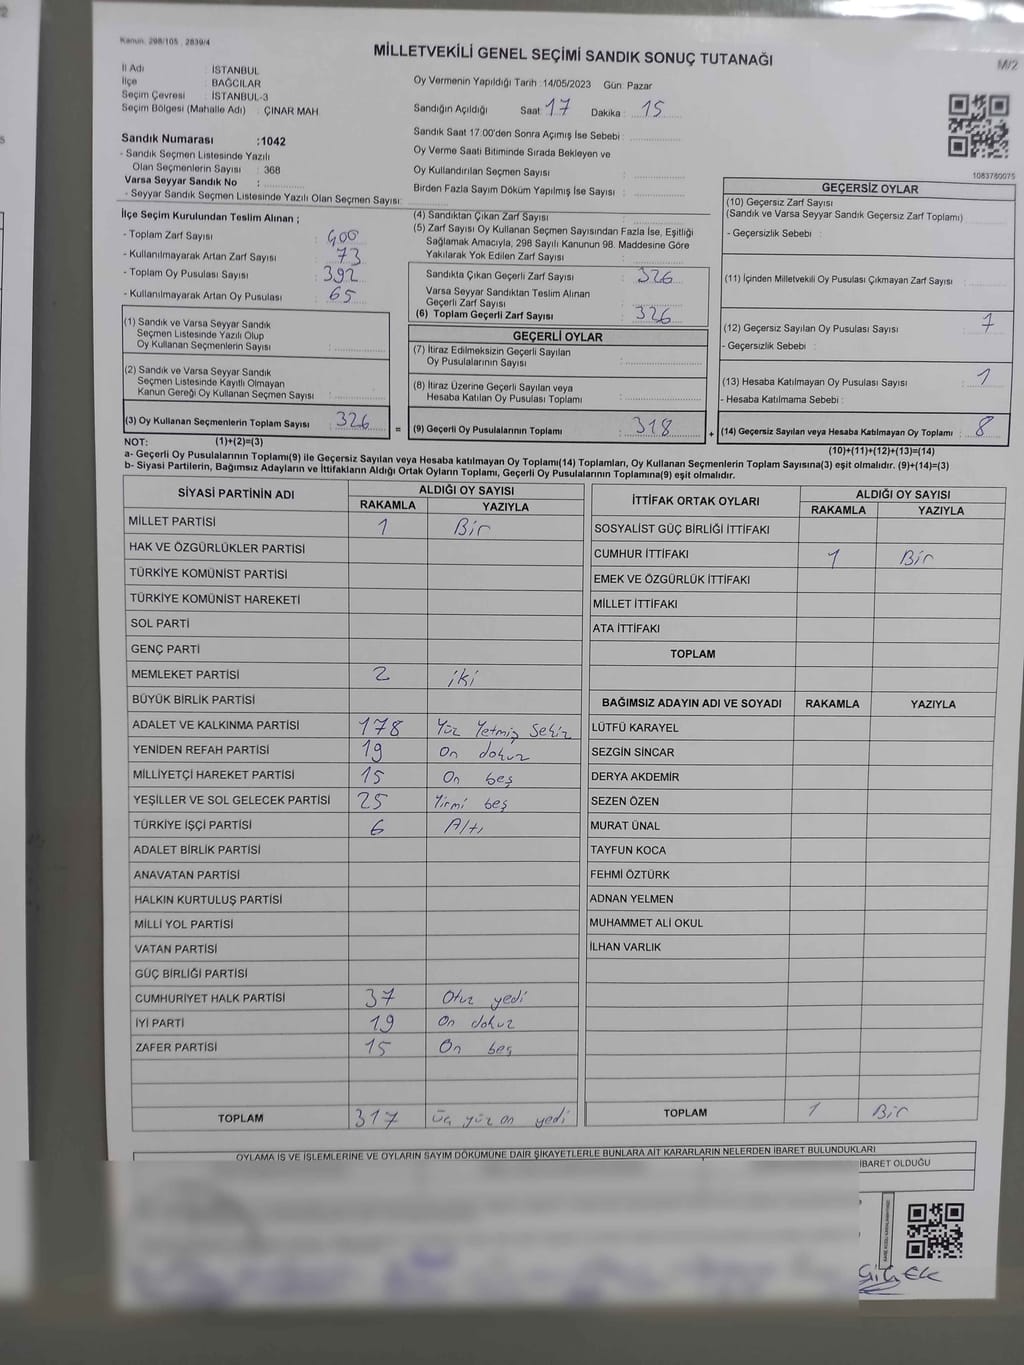 Kanun: 298/105 , 2839/4
MİLLETVEKİLİ GENEL SEÇİMİ SANDIK SONUÇ TUTANAĞI
M/2
İl Adı : İSTANBUL
İlçe : BAĞCILAR
Seçim Çevresi : İSTANBUL-3
Seçim Bölgesi (Mahalle Adı) : ÇINAR MAH
Sandık Numarası :1042
- Sandık Seçmen Listesinde Yazılı
Olan Seçmenlerin Sayısı : 368
Varsa Seyyar Sandık No :
- Seyyar Sandık Seçmen Listesinde Yazılı Olan Seçmen Sayısı:
Oy Vermenin Yapıldığı Tarih :14/05/2023 Gün: Pazar
Sandığın Açıldığı Saat: 17 Dakika : 15
Sandık Saat 17:00'den Sonra Açımış İse Sebebi :
Oy Verme Saati Bitiminde Sırada Bekleyen ve
Oy Kullandırılan Seçmen Sayısı :
Birden Fazla Sayım Döküm Yapılmış İse Sayısı :
1083760075
İlçe Seçim Kurulundan Teslim Alınan ;
- Toplam Zarf Sayısı : 400
- Kullanılmayarak Artan Zarf Sayısı : 73
- Toplam Oy Pusulası Sayısı : 392
- Kullanılmayarak Artan Oy Pusulası : 65
(1) Sandık ve Varsa Seyyar Sandık
Seçmen Listesinde Yazılı Olup
Oy Kullanan Seçmenlerin Sayısı :
(2) Sandık ve Varsa Seyyar Sandık
Seçmen Listesinde Kayıtlı Olmayan
Kanun Gereği Oy Kullanan Seçmen Sayısı :
(3) Oy Kullanan Seçmenlerin Toplam Sayısı : 326
(1)+(2)=(3)
(4) Sandıktan Çıkan Zarf Sayısı :
(5) Zarf Sayısı Oy Kullanan Seçmen Sayısından Fazla İse, Eşitliği
Sağlamak Amacıyla, 298 Sayılı Kanunun 98. Maddesine Göre
Yakılarak Yok Edilen Zarf Sayısı :
Sandıkta Çıkan Geçerli Zarf Sayısı : 326
Varsa Seyyar Sandıktan Teslim Alınan
Geçerli Zarf Sayısı :
(6) Toplam Geçerli Zarf Sayısı : 326
GEÇERLİ OYLAR
(7) İtiraz Edilmeksizin Geçerli Sayılan
Oy Pusulalarının Sayısı :
(8) İtiraz Üzerine Geçerli Sayılan veya
Hesaba Katılan Oy Pusulası Toplamı :
= (9) Geçerli Oy Pusulalarının Toplamı : 318
GEÇERSİZ OYLAR
(10) Geçersiz Zarf Sayısı
(Sandık ve Varsa Seyyar Sandık Geçersiz Zarf Toplamı) :
- Geçersizlik Sebebi :
(11) İçinden Milletvekili Oy Pusulası Çıkmayan Zarf Sayısı :
(12) Geçersiz Sayılan Oy Pusulası Sayısı : 7
- Geçersizlik Sebebi :
(13) Hesaba Katılmayan Oy Pusulası Sayısı : 1
- Hesaba Katılmama Sebebi :
+ (14) Geçersiz Sayılan veya Hesaba Katılmayan Oy Toplamı : 8
(10)+(11)+(12)+(13)=(14)
NOT:
a- Geçerli Oy Pusulalarının Toplamı(9) ile Geçersiz Sayılan veya Hesaba katılmayan Oy Toplamı(14) Toplamları, Oy Kullanan Seçmenlerin Toplam Sayısına(3) eşit olmalıdır. (9)+(14)=(3)
b- Siyasi Partilerin, Bağımsız Adayların ve İttifakların Aldığı Ortak Oyların Toplamı, Geçerli Oy Pusulalarının Toplamına(9) eşit olmalıdır.
SİYASİ PARTİNİN ADI ALDIĞI OY SAYISI
RAKAMLA YAZIYLA
MİLLET PARTİSİ 1 Bir
HAK VE ÖZGÜRLÜKLER PARTİSİ
TÜRKİYE KOMÜNİST PARTİSİ
TÜRKİYE KOMÜNİST HAREKETİ
SOL PARTİ
GENÇ PARTİ
MEMLEKET PARTİSİ 2 iki
BÜYÜK BİRLİK PARTİSİ
ADALET VE KALKINMA PARTİSİ 178 Yüz Yetmiş Sekiz
YENİDEN REFAH PARTİSİ 19 On dokuz
MİLLİYETÇİ HAREKET PARTİSİ 15 On beş
YEŞİLLER VE SOL GELECEK PARTİSİ 25 Yirmi beş
TÜRKİYE İŞÇİ PARTİSİ 6 Altı
ADALET BİRLİK PARTİSİ
ANAVATAN PARTİSİ
HALKIN KURTULUŞ PARTİSİ
MİLLİ YOL PARTİSİ
VATAN PARTİSİ
GÜÇ BİRLİĞİ PARTİSİ
CUMHURİYET HALK PARTİSİ 37 Otuz yedi
İYİ PARTİ 19 On dokuz
ZAFER PARTİSİ 15 On beş
TOPLAM 317 Üç yüz on yedi
İTTİFAK ORTAK OYLARI ALDIĞI OY SAYISI
RAKAMLA YAZIYLA
SOSYALİST GÜÇ BİRLİĞİ İTTİFAKI
CUMHUR İTTİFAKI 1 Bir
EMEK VE ÖZGÜRLÜK İTTİFAKI
MİLLET İTTİFAKI
ATA İTTİFAKI
TOPLAM
BAĞIMSIZ ADAYIN ADI VE SOYADI RAKAMLA YAZIYLA
LÜTFÜ KARAYEL
SEZGİN SİNCAR
DERYA AKDEMİR
SEZEN ÖZEN
MURAT ÜNAL
TAYFUN KOCA
FEHMİ ÖZTÜRK
ADNAN YELMEN
MUHAMMET ALİ OKUL
İLHAN VARLIK
TOPLAM 1 Bir
OYLAMA İŞ VE İŞLEMLERİNE VE OYLARIN SAYIM DÖKÜMÜNE DAİR ŞİKAYETLERLE BUNLARA AİT KARARLARIN NELERDEN İBARET BULUNDUKLARI
İBARET OLDUĞU